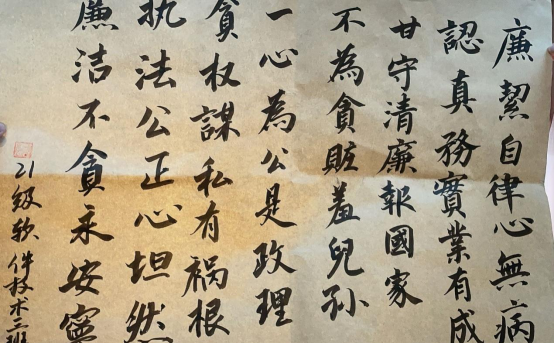 廉潔自律心無病
認真務實業有成
甘守清廉報國家
不為貪賍羞兒孫
一心為公是政理
貪权謀私有祸根
执法公正心坦然
廉洁不貪永安寧
21级软件技术三班